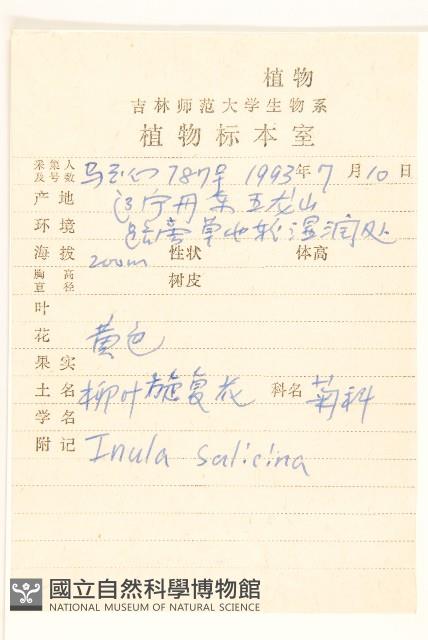 植物
吉林师范大学生物系
植物标本室
采集人及号数 马 787号 1993年7月10日
产地 辽宁丹东五龙山
环境 路旁草地较湿润处
海拔 200m 性状 体高
胸高直径 树皮
叶
花 黄色
果实
土名 柳叶旋复花 科名 菊科
学名
附记 Inula salicina
國立自然科學博物館
NATIONAL MUSEUM OF NATURAL SCIENCE